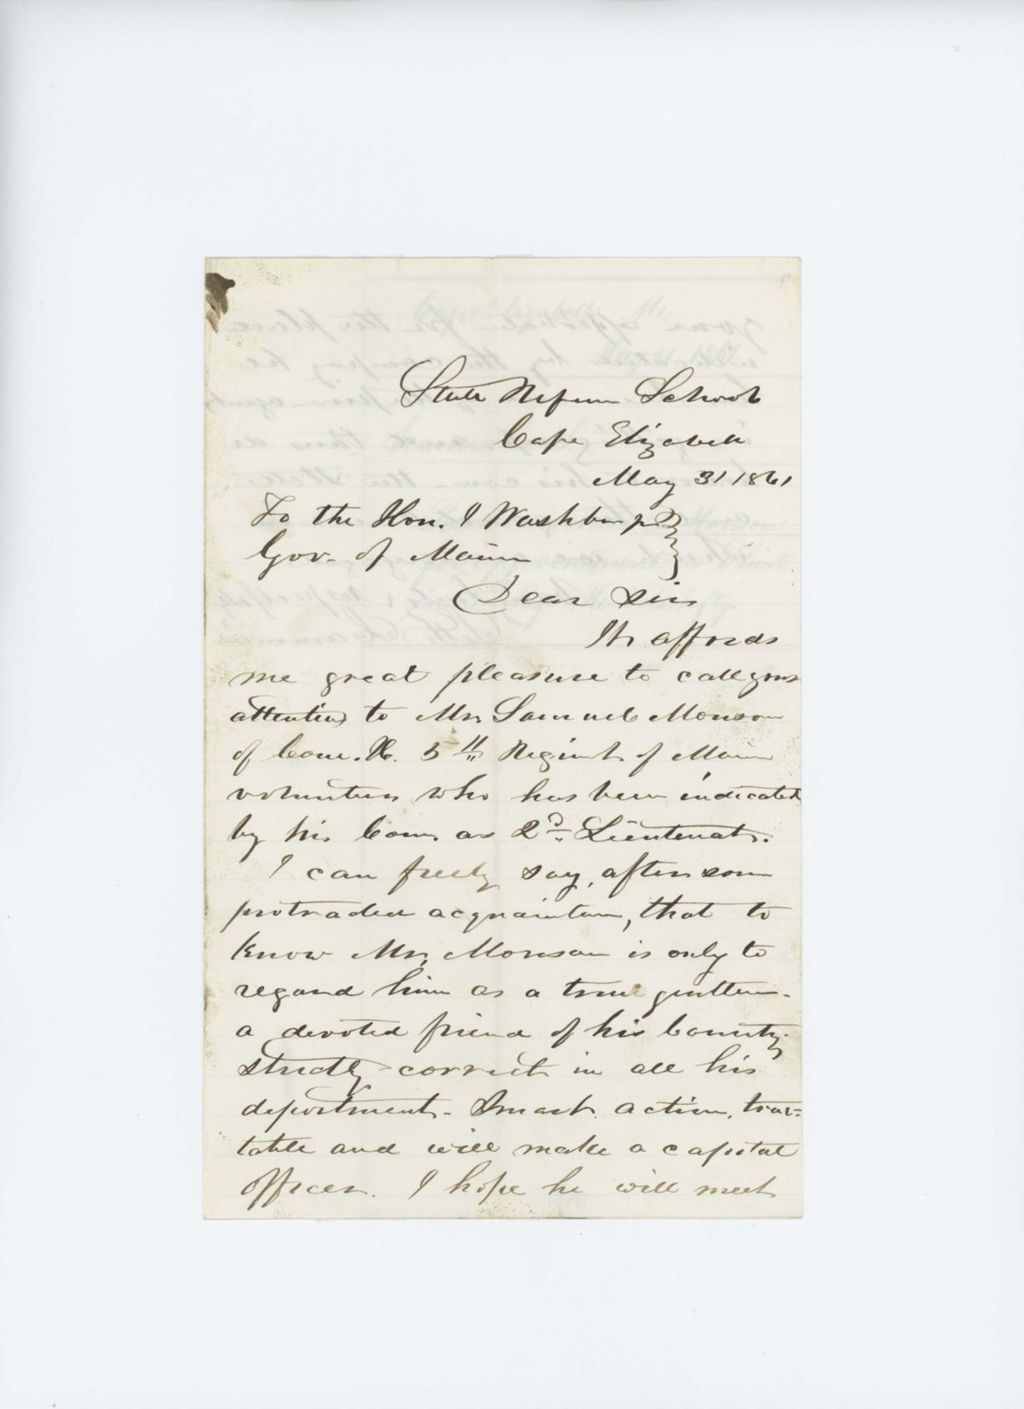 State Reform School
Cape Elizabeth
May 31 1861
To the Hon. I Washburn
Gov. of Maine
Dear Sir
It affords
me great pleasure to call your
attention to Mr Samuel Monson
of Com. 5th Regiment of Maine
volunteers who has been indicated
by his Com as 2d Lieutenat.
I can freely say, after some
protracted acquaintance, that to
know Mr. Monson is only to
regard him as a true gentleman-
a devoted friend of his Country,
strictly correct in all his
deportment - Smart action, trac-
table and will make a capital
officer. I hope he will meet